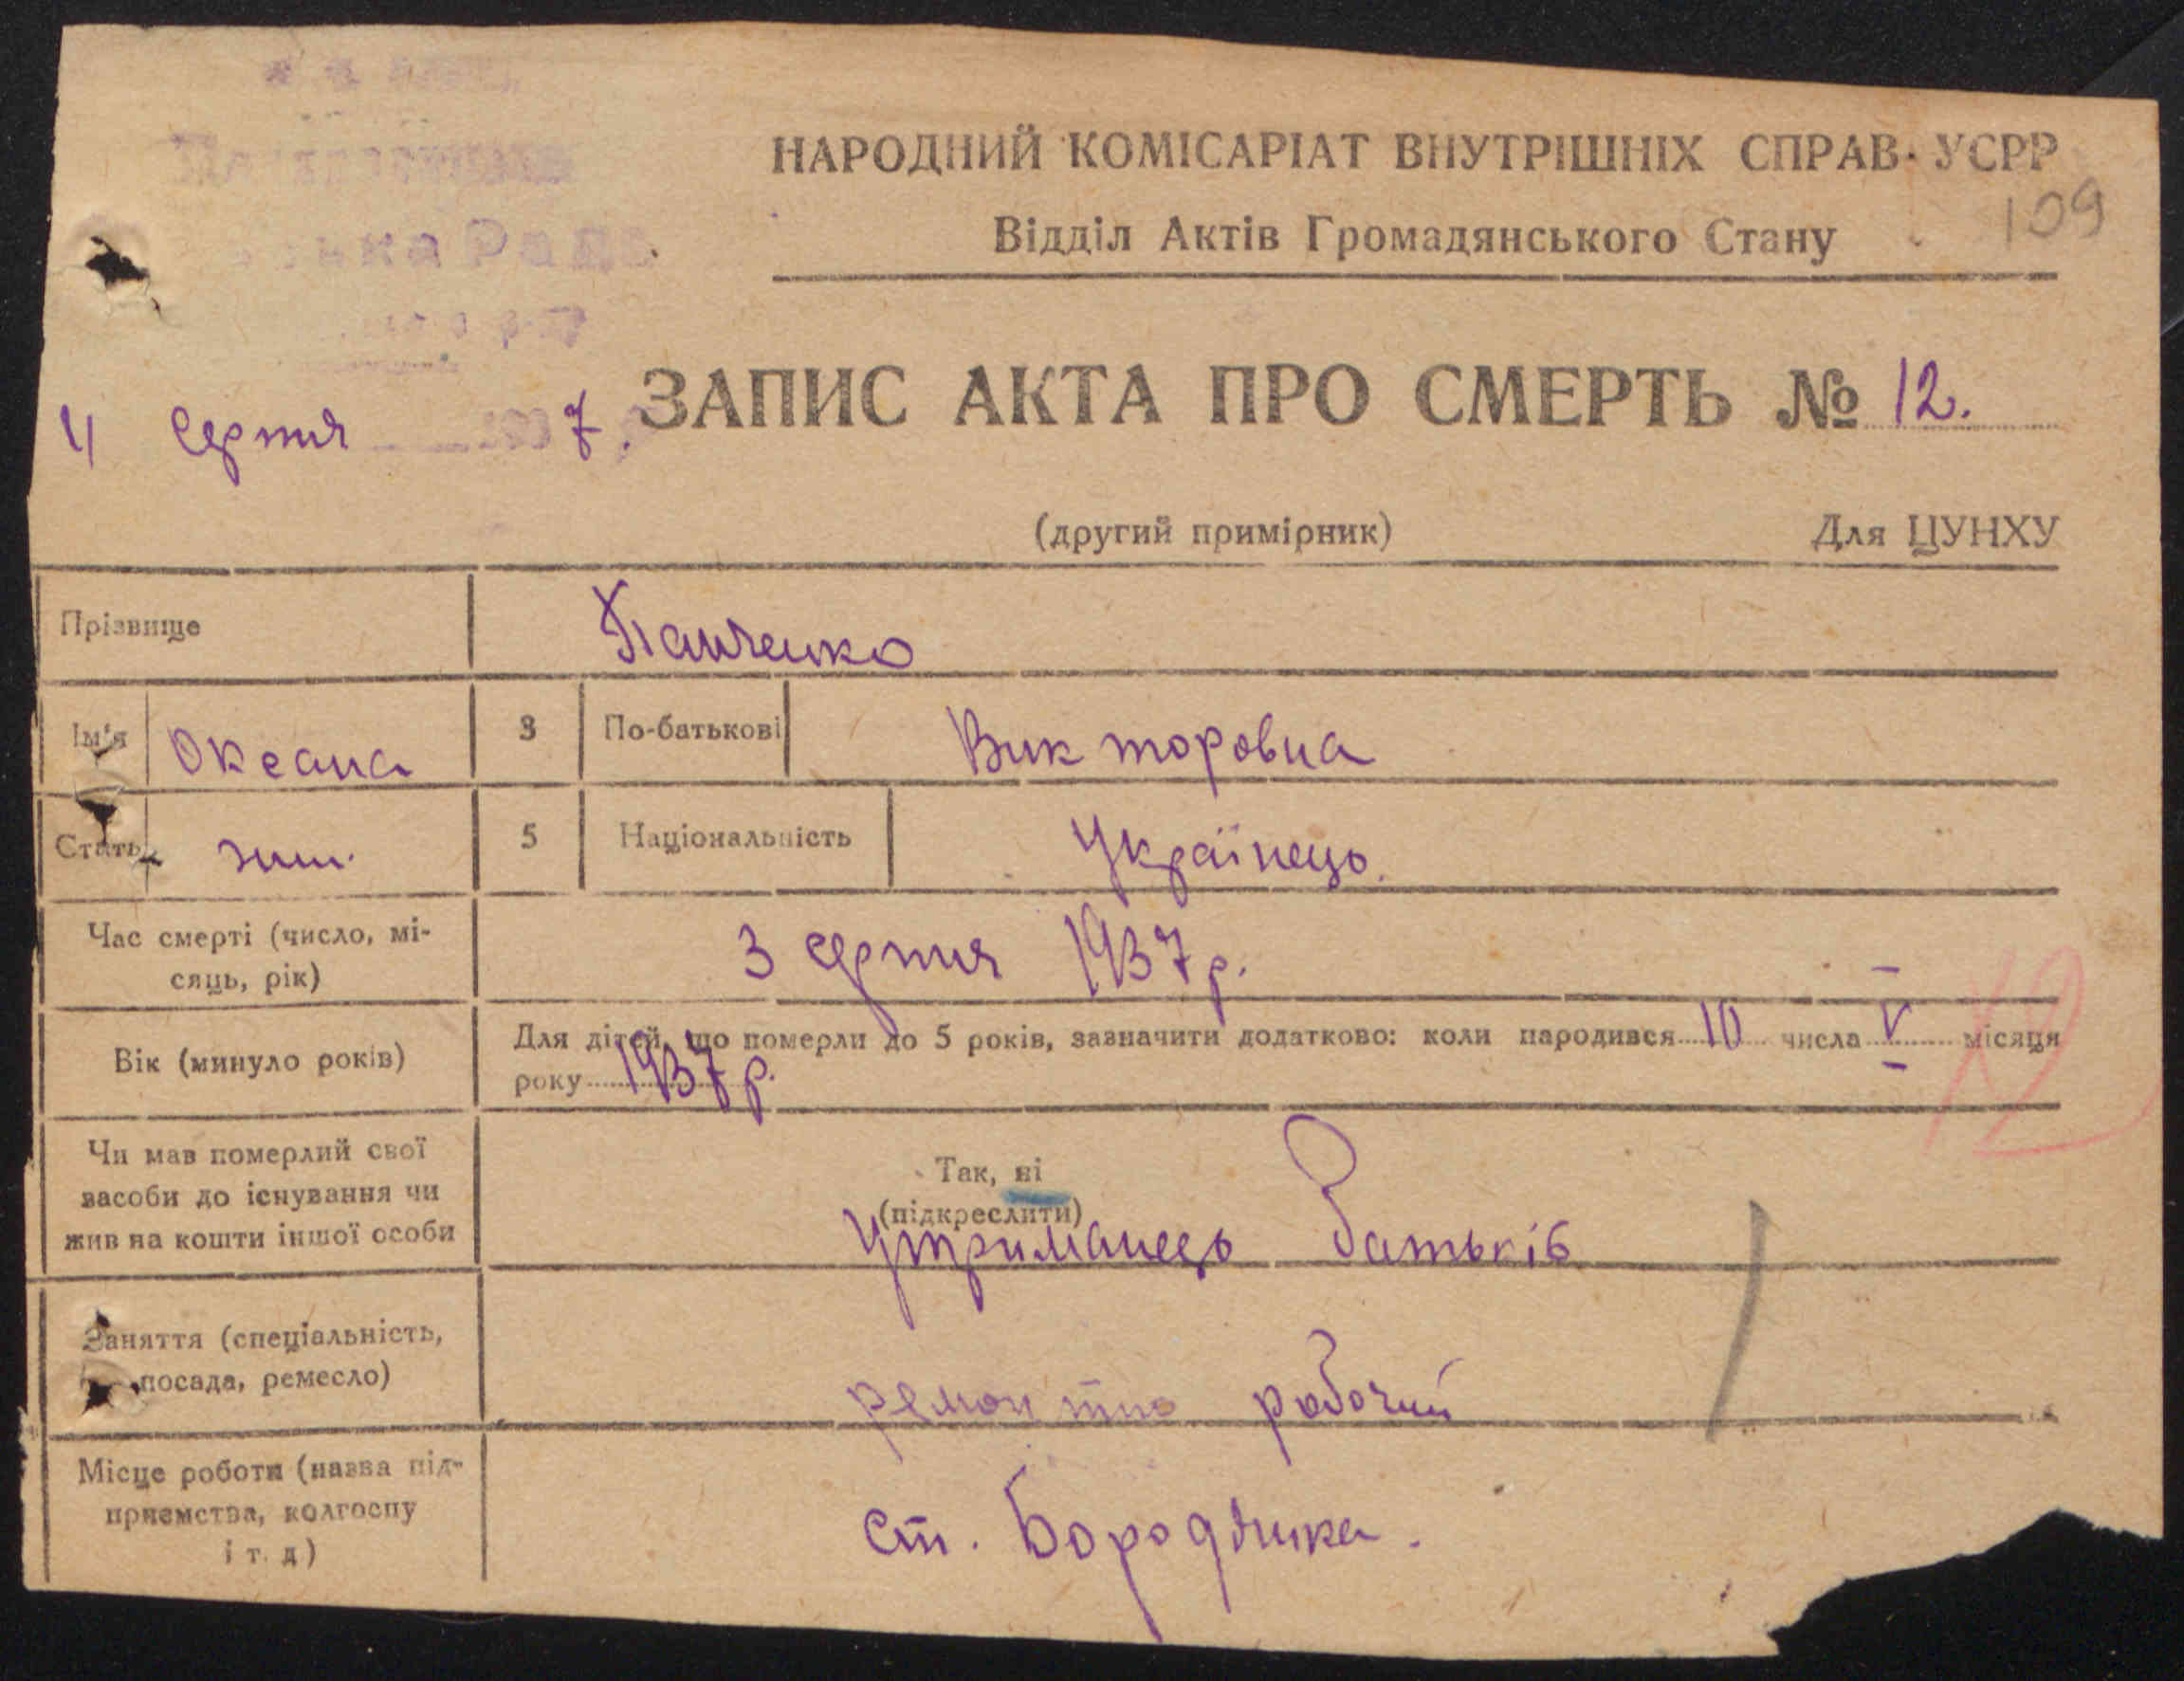 НАРОДНИЙ КОМІСАРІАТ ВНУТРІШНІХ СПРАВ УСРР
109
Відділ Актів Громадянського Стану
ька Рада
ЗАПИС АКТА ПРО СМЕРТЬ № 12.
4 серпня 1937.
(другий примірник) Для ЦУНХУ
Прізвище Панченко
Ім'я Океана 3 По-батькові Викторовна
Стать жін. 5 Національність Українець.
Час смерті (число, мі-
сяць, рік) 3 серпня 1937 р.
Вік (минуло років) Для дітей, що померли до 5 років, зазначити додатково: коли народився 10 числа V місяця
року 1937 р.
12
Чи мав померлий свої
засоби до існування чи
жив на кошти іншої особи
Так, ні
(підкреслити)
Утриманець батьків
Заняття (спеціальність,
посада, ремесло) ремонтно робочий
Місце роботи (назва під-
приємства, колгоспу
і т. д) ст. Бородянка.